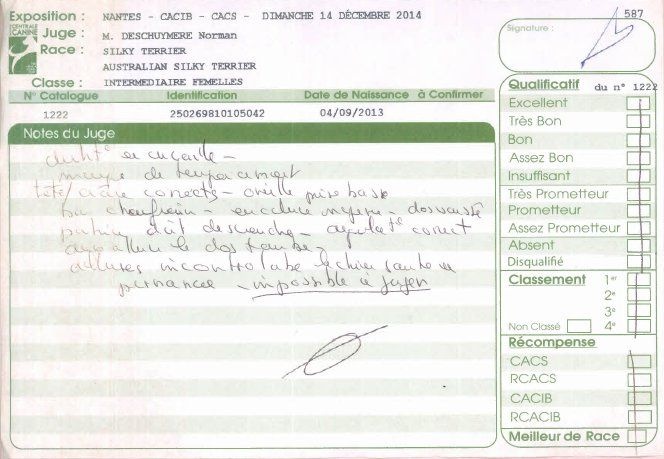 Exposition : NANTES - CACIB - CACS - DIMANCHE 14 DÉCEMBRE 2014
CENTRALE CANINE
Juge : M. DESCHUYMERE Norman
Race : SILKY TERRIER
AUSTRALIAN SILKY TERRIER
Classe : INTERMEDIAIRE FEMELLES
N° Catalogue Identification Date de Naissance à Confirmer
1222 250269810105042 04/09/2013
Notes du Juge
en
manque de tempérament
tête correcte - oreille prise basse
chanfrein - encolure moyenne -
poitrine doit descendre - correct
le dos
allures incontrolable le chien saute en
permanence - impossible à juger
587
Signature :
Qualificatif du n° 1222
Excellent
Très Bon
Bon
Assez Bon
Insuffisant
Très Prometteur
Prometteur
Assez Prometteur
Absent
Disqualifié
Classement 1er
2e
3e
Non Classé 4e
Récompense
CACS
RCACS
CACIB
RCACIB
Meilleur de Race